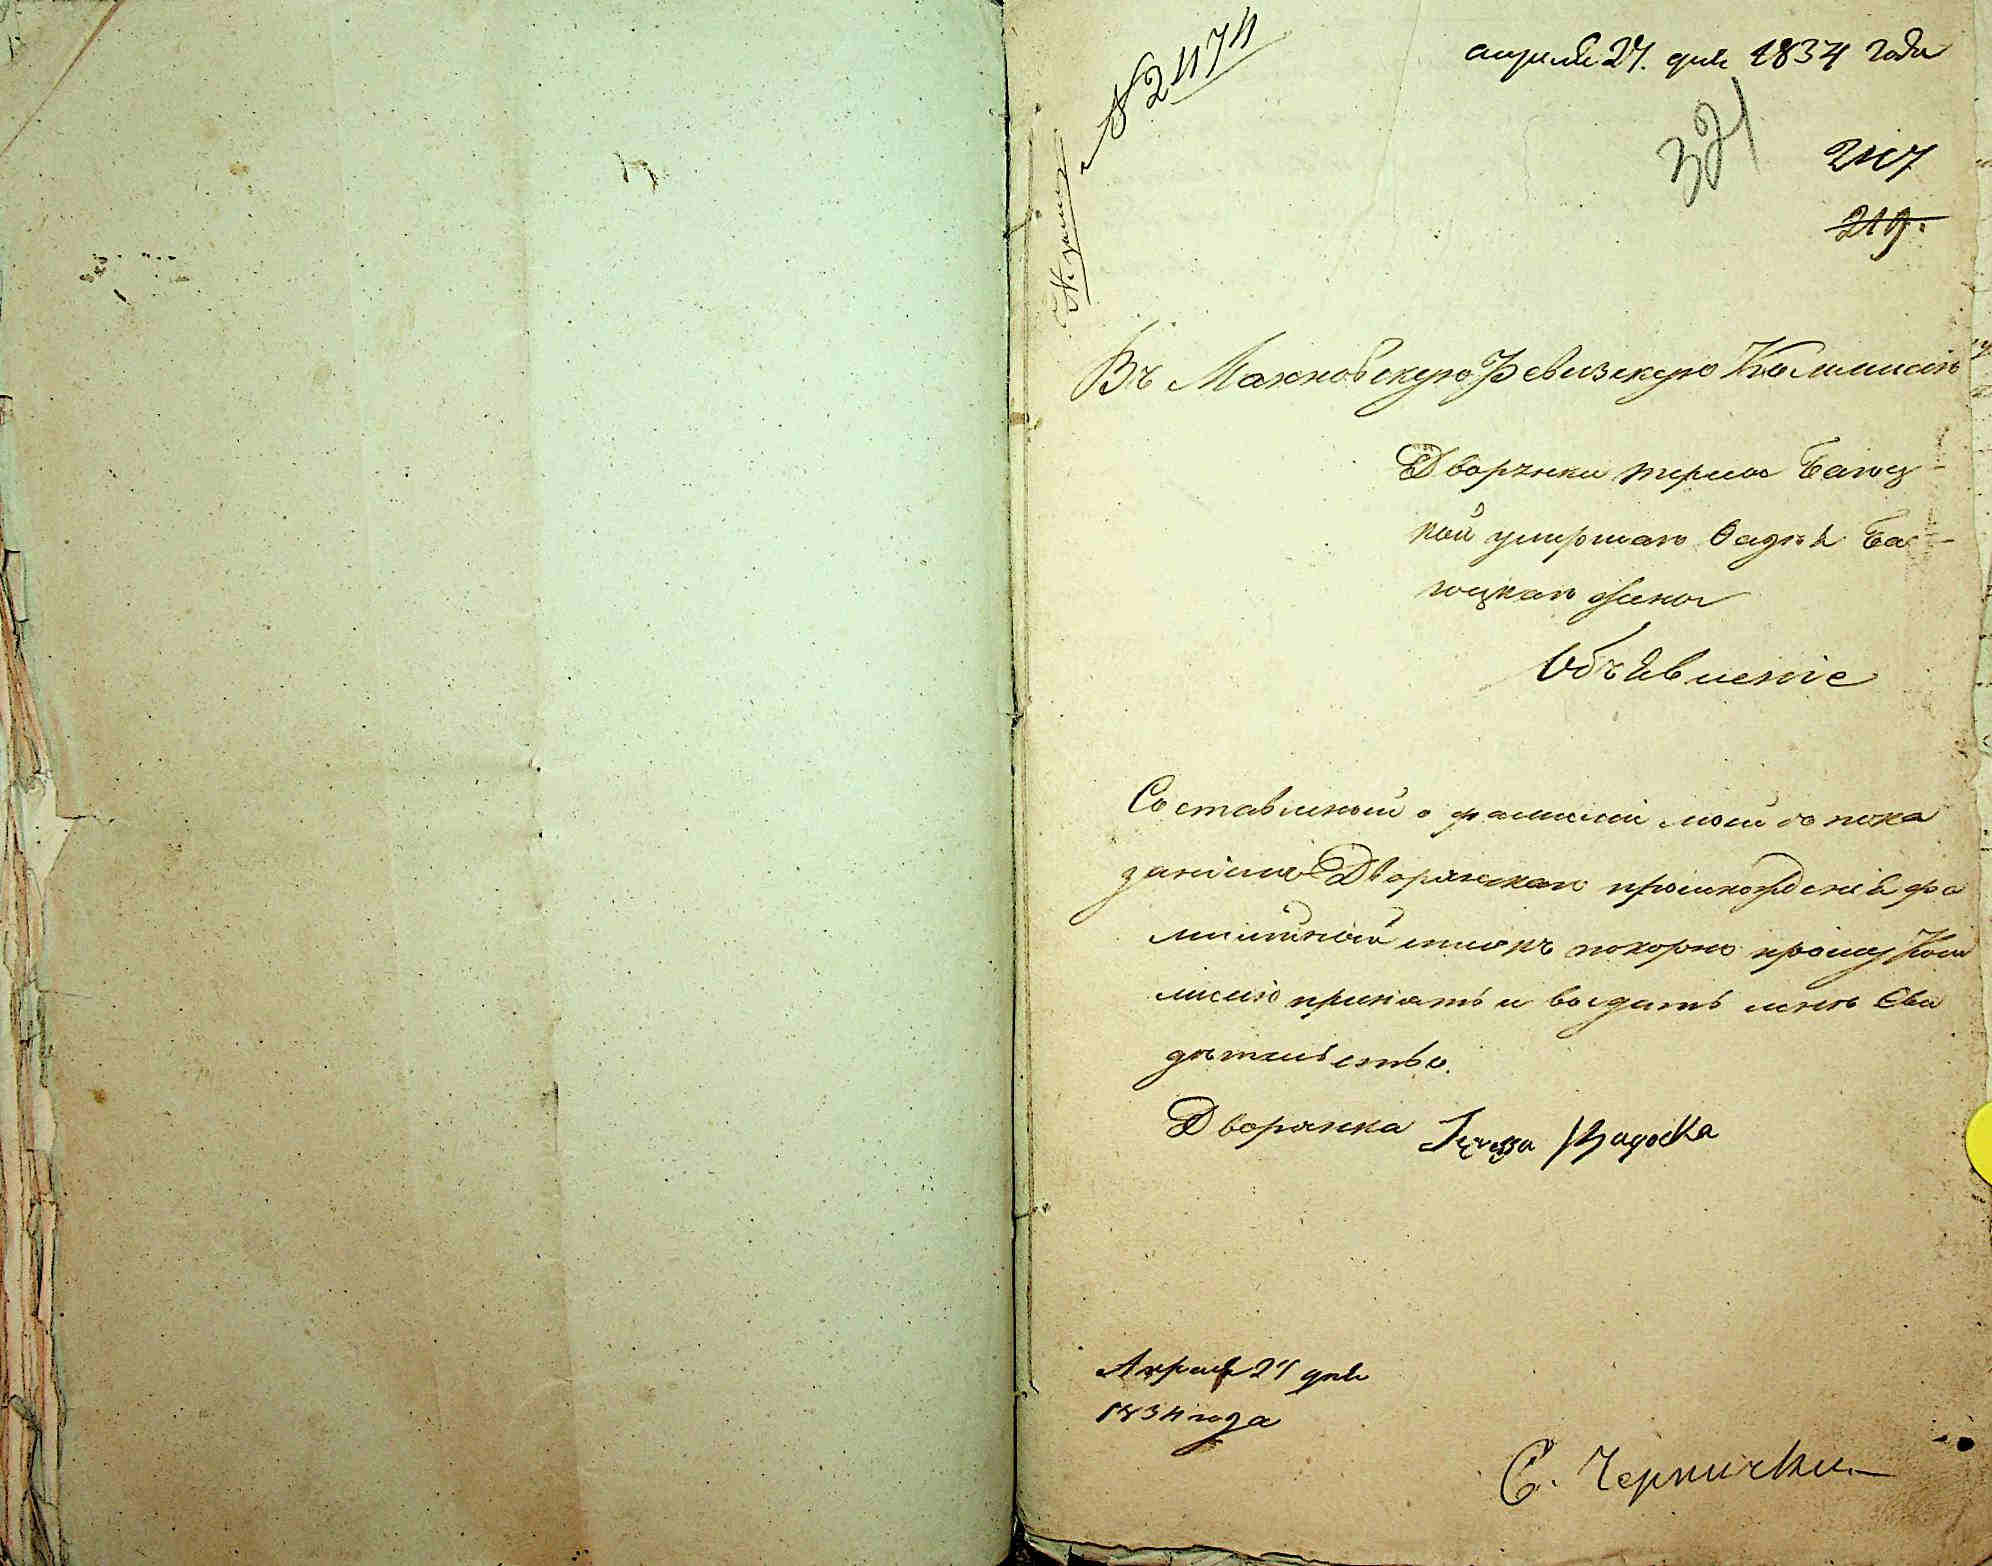 № 2474
апреля 27. дня 1834 года
321
217
219.
Въ Махновскую Ревизскую Коммисію
Дворянки
кой умершаго Ба-
жены
Объявленіе
Составленный о фамиліи моей съ пока
заніемъ Дворянскаго происхожденія фа
милійный списокъ покорно прошу Ком
мисію принять и выдать мнѣ Сви
дѣтельство.
Дворянка
Апреля 27 дня
1834 года
С. Чернички